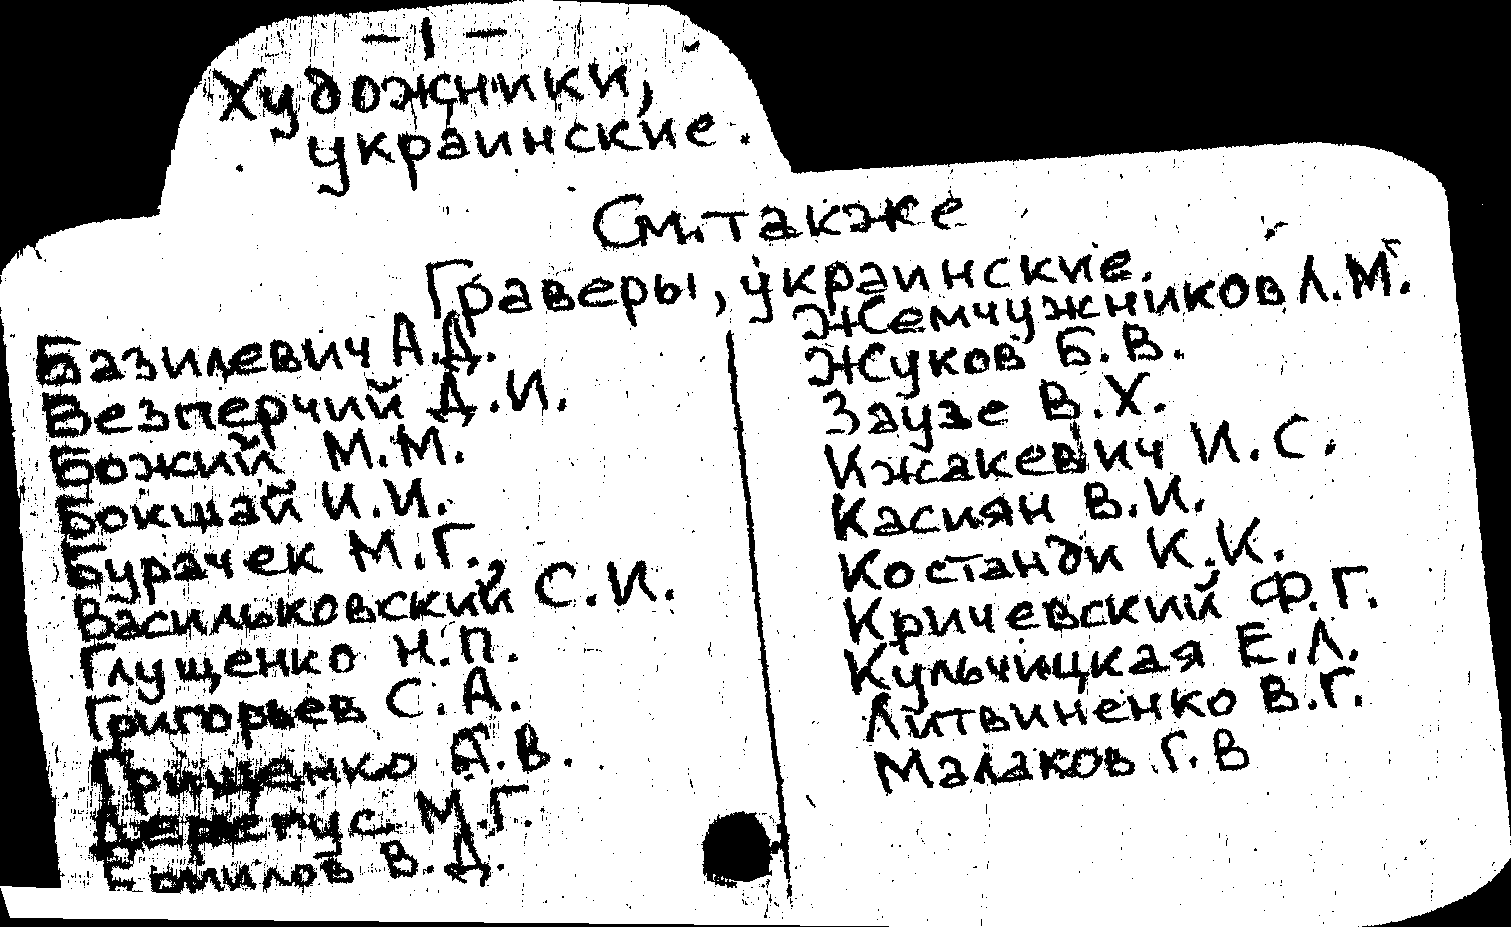 - 1 -
Художники,
украинские.
См. также
Граверы, украинские.
Базилевич А.Д.
Безперчий Д.И.
Божий М.М.
Бокшай И.И.
Бурачек М.Г.
Васильковский С.И.
Глущенко Н.П.
Григорьев С.А.
Грищенко А.В.
Дерегус М.Г.
Ермилов В.Д.
Жемчужников Л.М.
Жуков Б.В.
Заузе В.Х.
Ижакевич И.С.
Касиян В.И.
Костанди К.К.
Кричевский Ф.Г.
Кульчицкая Е.Л.
Литвиненко В.Г.
Малаков Г.В